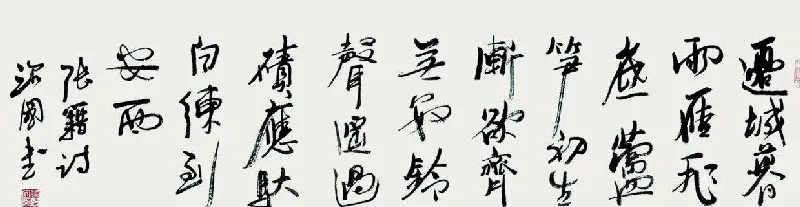 邊城暮
雨雁飛
低蘆
笋初生
漸欲齊
無數鈴
聲遙過
磧應馱
白練到
安西
張籍詩
國書